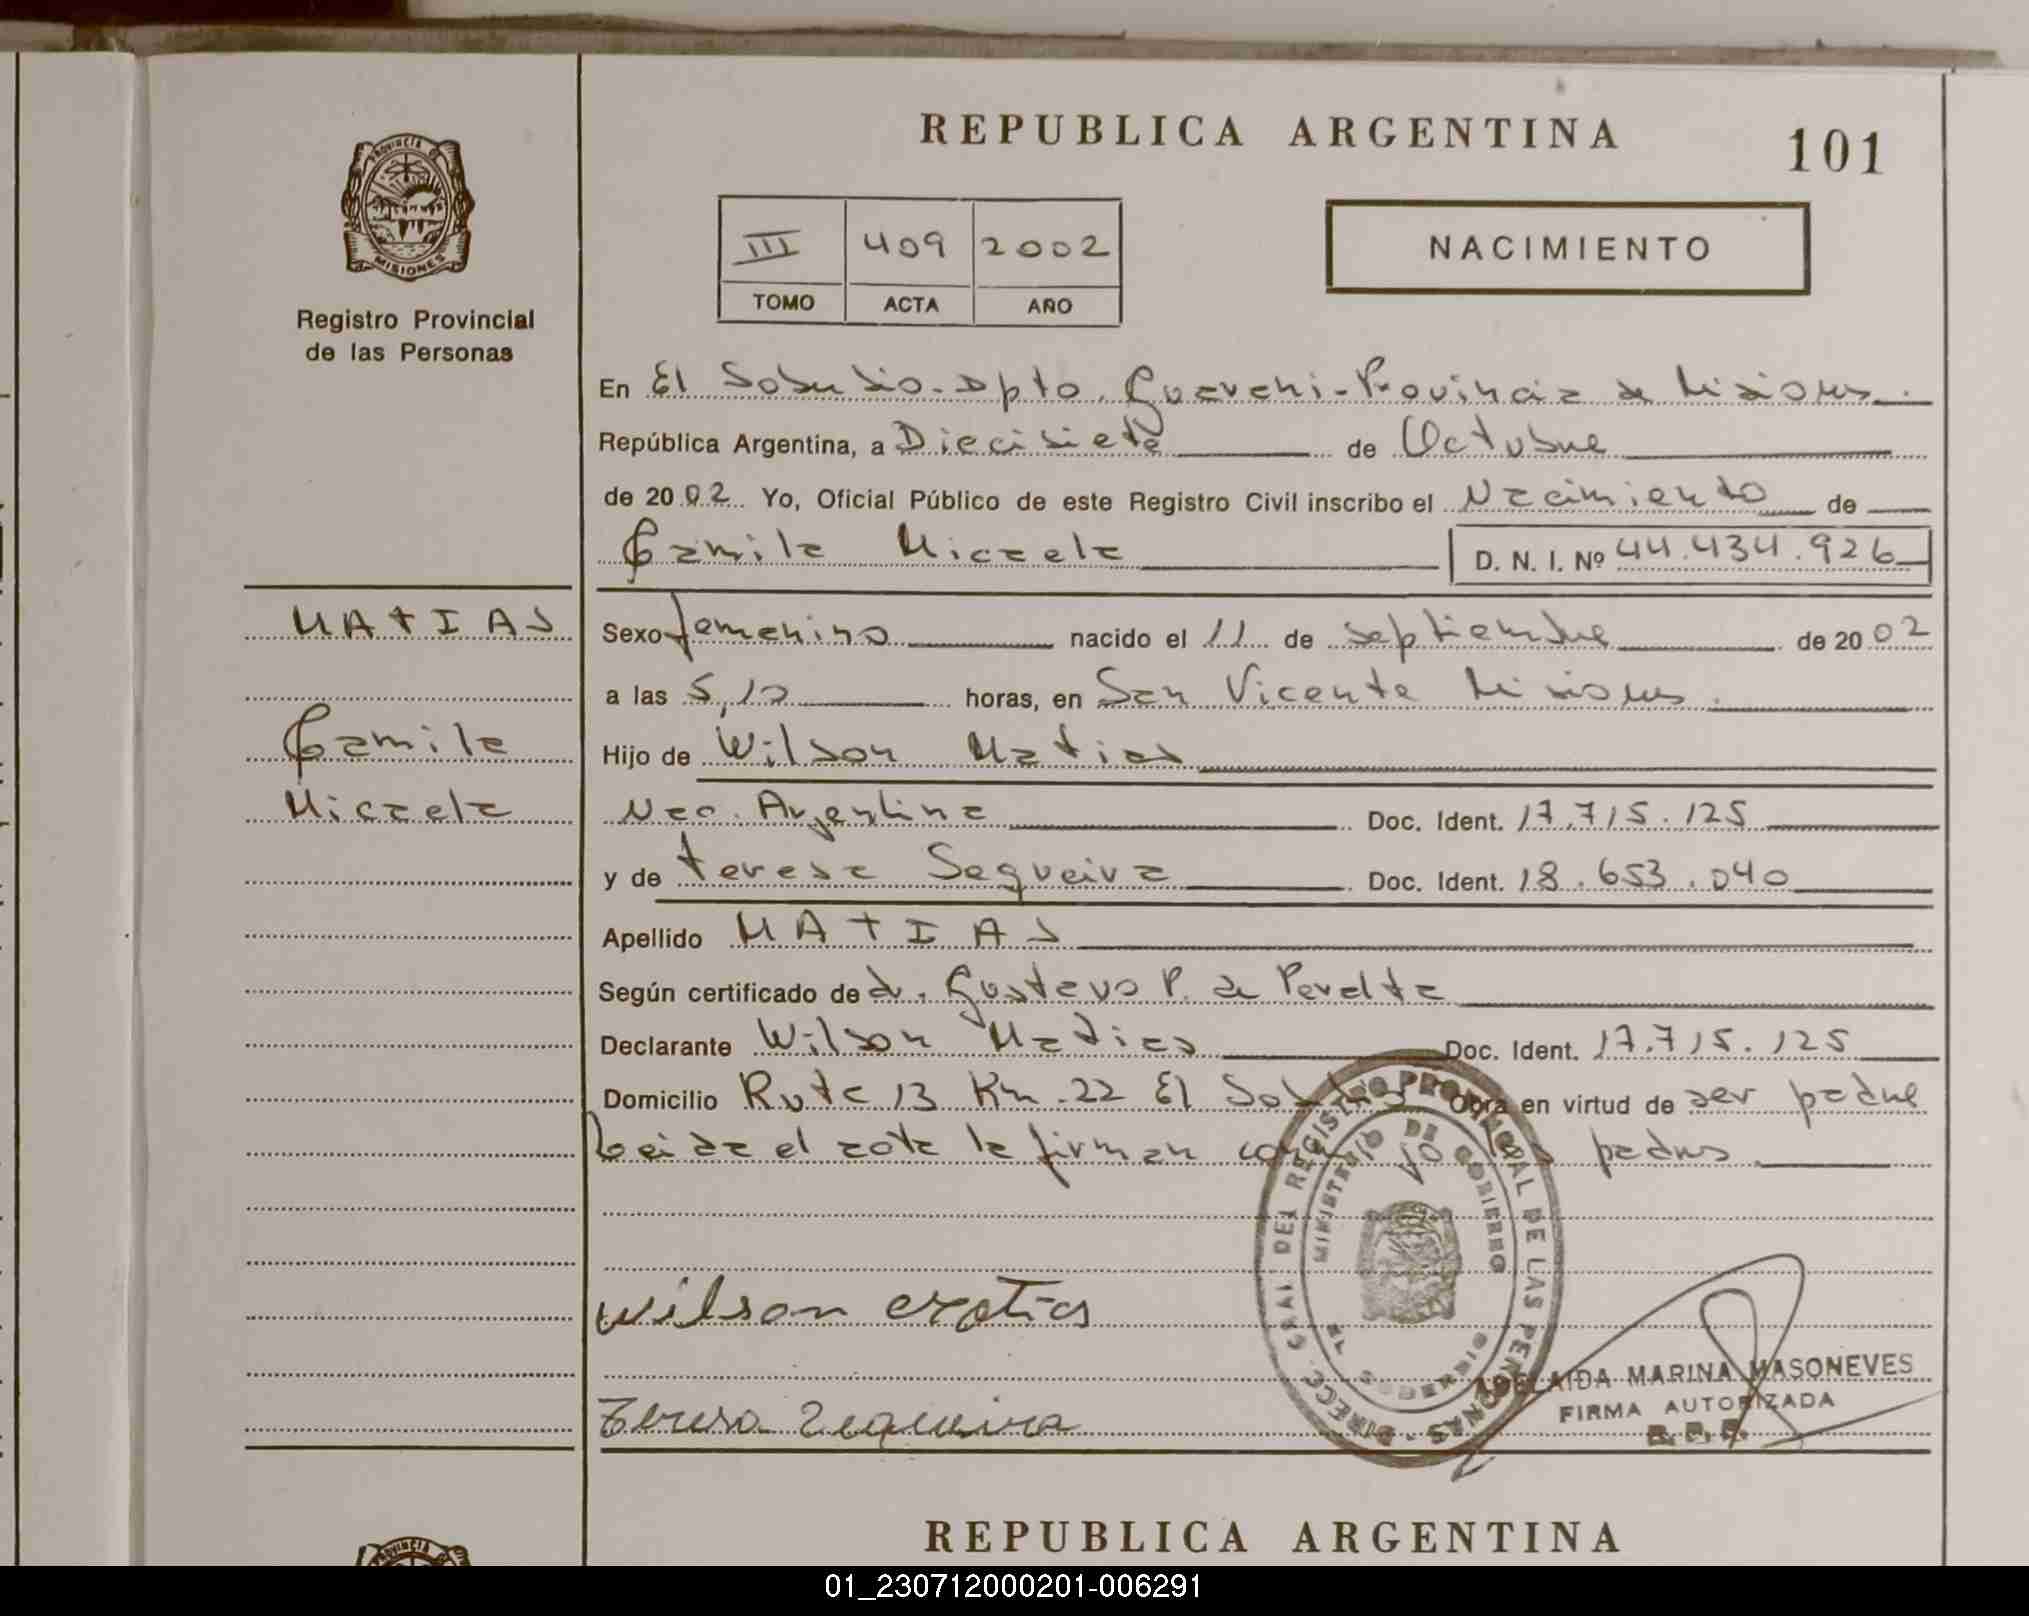 REPUBLICA ARGENTINA
101
PROVINCIA DE
MISIONES
Registro Provincial
de las Personas
III 409 2002
TOMO ACTA AÑO
NACIMIENTO
En El Soberbio - Dpto. Guarani - Provincia de Misiones.
República Argentina, a Diecisiete de Octubre
de 2002 Yo, Oficial Público de este Registro Civil inscribo el Nacimiento de
Camila Micaela D. N. I. Nº 44.434.926
MATIAS
Camila
Micaela
Sexo femenino nacido el 11 de septiembre de 2002
a las 5,10 horas, en San Vicente Misiones.
Hijo de Wilson Matias
Nac. Argentina Doc. Ident. 17.715.125
y de teresa Sequeira Doc. Ident. 18.653.040
Apellido MATIAS
Según certificado de dr. Gustavo P. de Peralta
Declarante Wilson Matias Doc. Ident. 17.715.125
Domicilio Ruta 13 Km. 22 El Soberbio Obra en virtud de ser padre
Leida el acta la firman padres
Wilson
Teresa Sequeira
DIRECC. GRAL DEL REGISTRO PROVINCIAL DE LAS PERSONAS
MINISTERIO DE GOBIERNO
ADELAIDA MARINA MASONEVES
FIRMA AUTORIZADA
REPUBLICA ARGENTINA
01_230712000201-006291